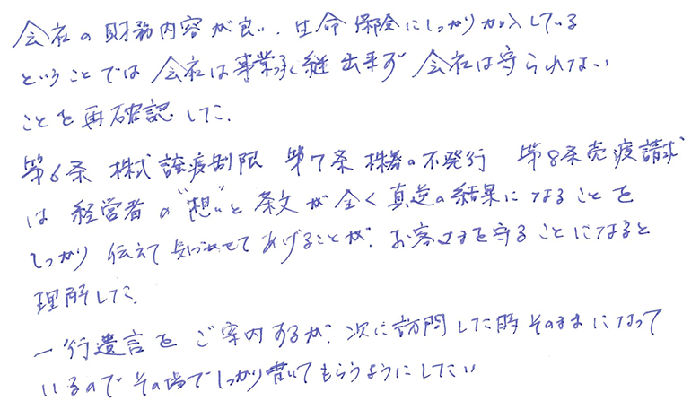 会社の財務内容が良い、生命保険にしっかり加入している
ということでは会社は事業承継出来ず会社は守られない
ことを再確認した。
第6条 株式譲渡制限 第7条 株券の不発行 第8条売渡請求
は 経営者の"想い"と条文が全く真逆の結果になることを
しっかり伝えて気づかせてあげることが、お客さまを守ることになると
理解した。
一行遺言をご案内するが、次に訪問した時そのままになって
いるのでその場でしっかり書いてもらうようにしたい